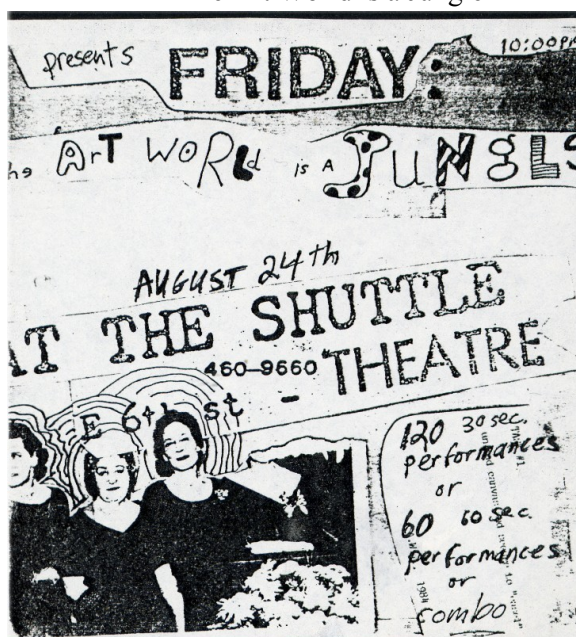 presents FRIDAY: 10:00PM
he ArT WORLd is A JUNgLS
AUGUST 24th
AT THE SHUTTLE
460-9660 - THEATRE
E 6th st
120 30 sec.
performances
or
60 60 sec.
performances
or
combo